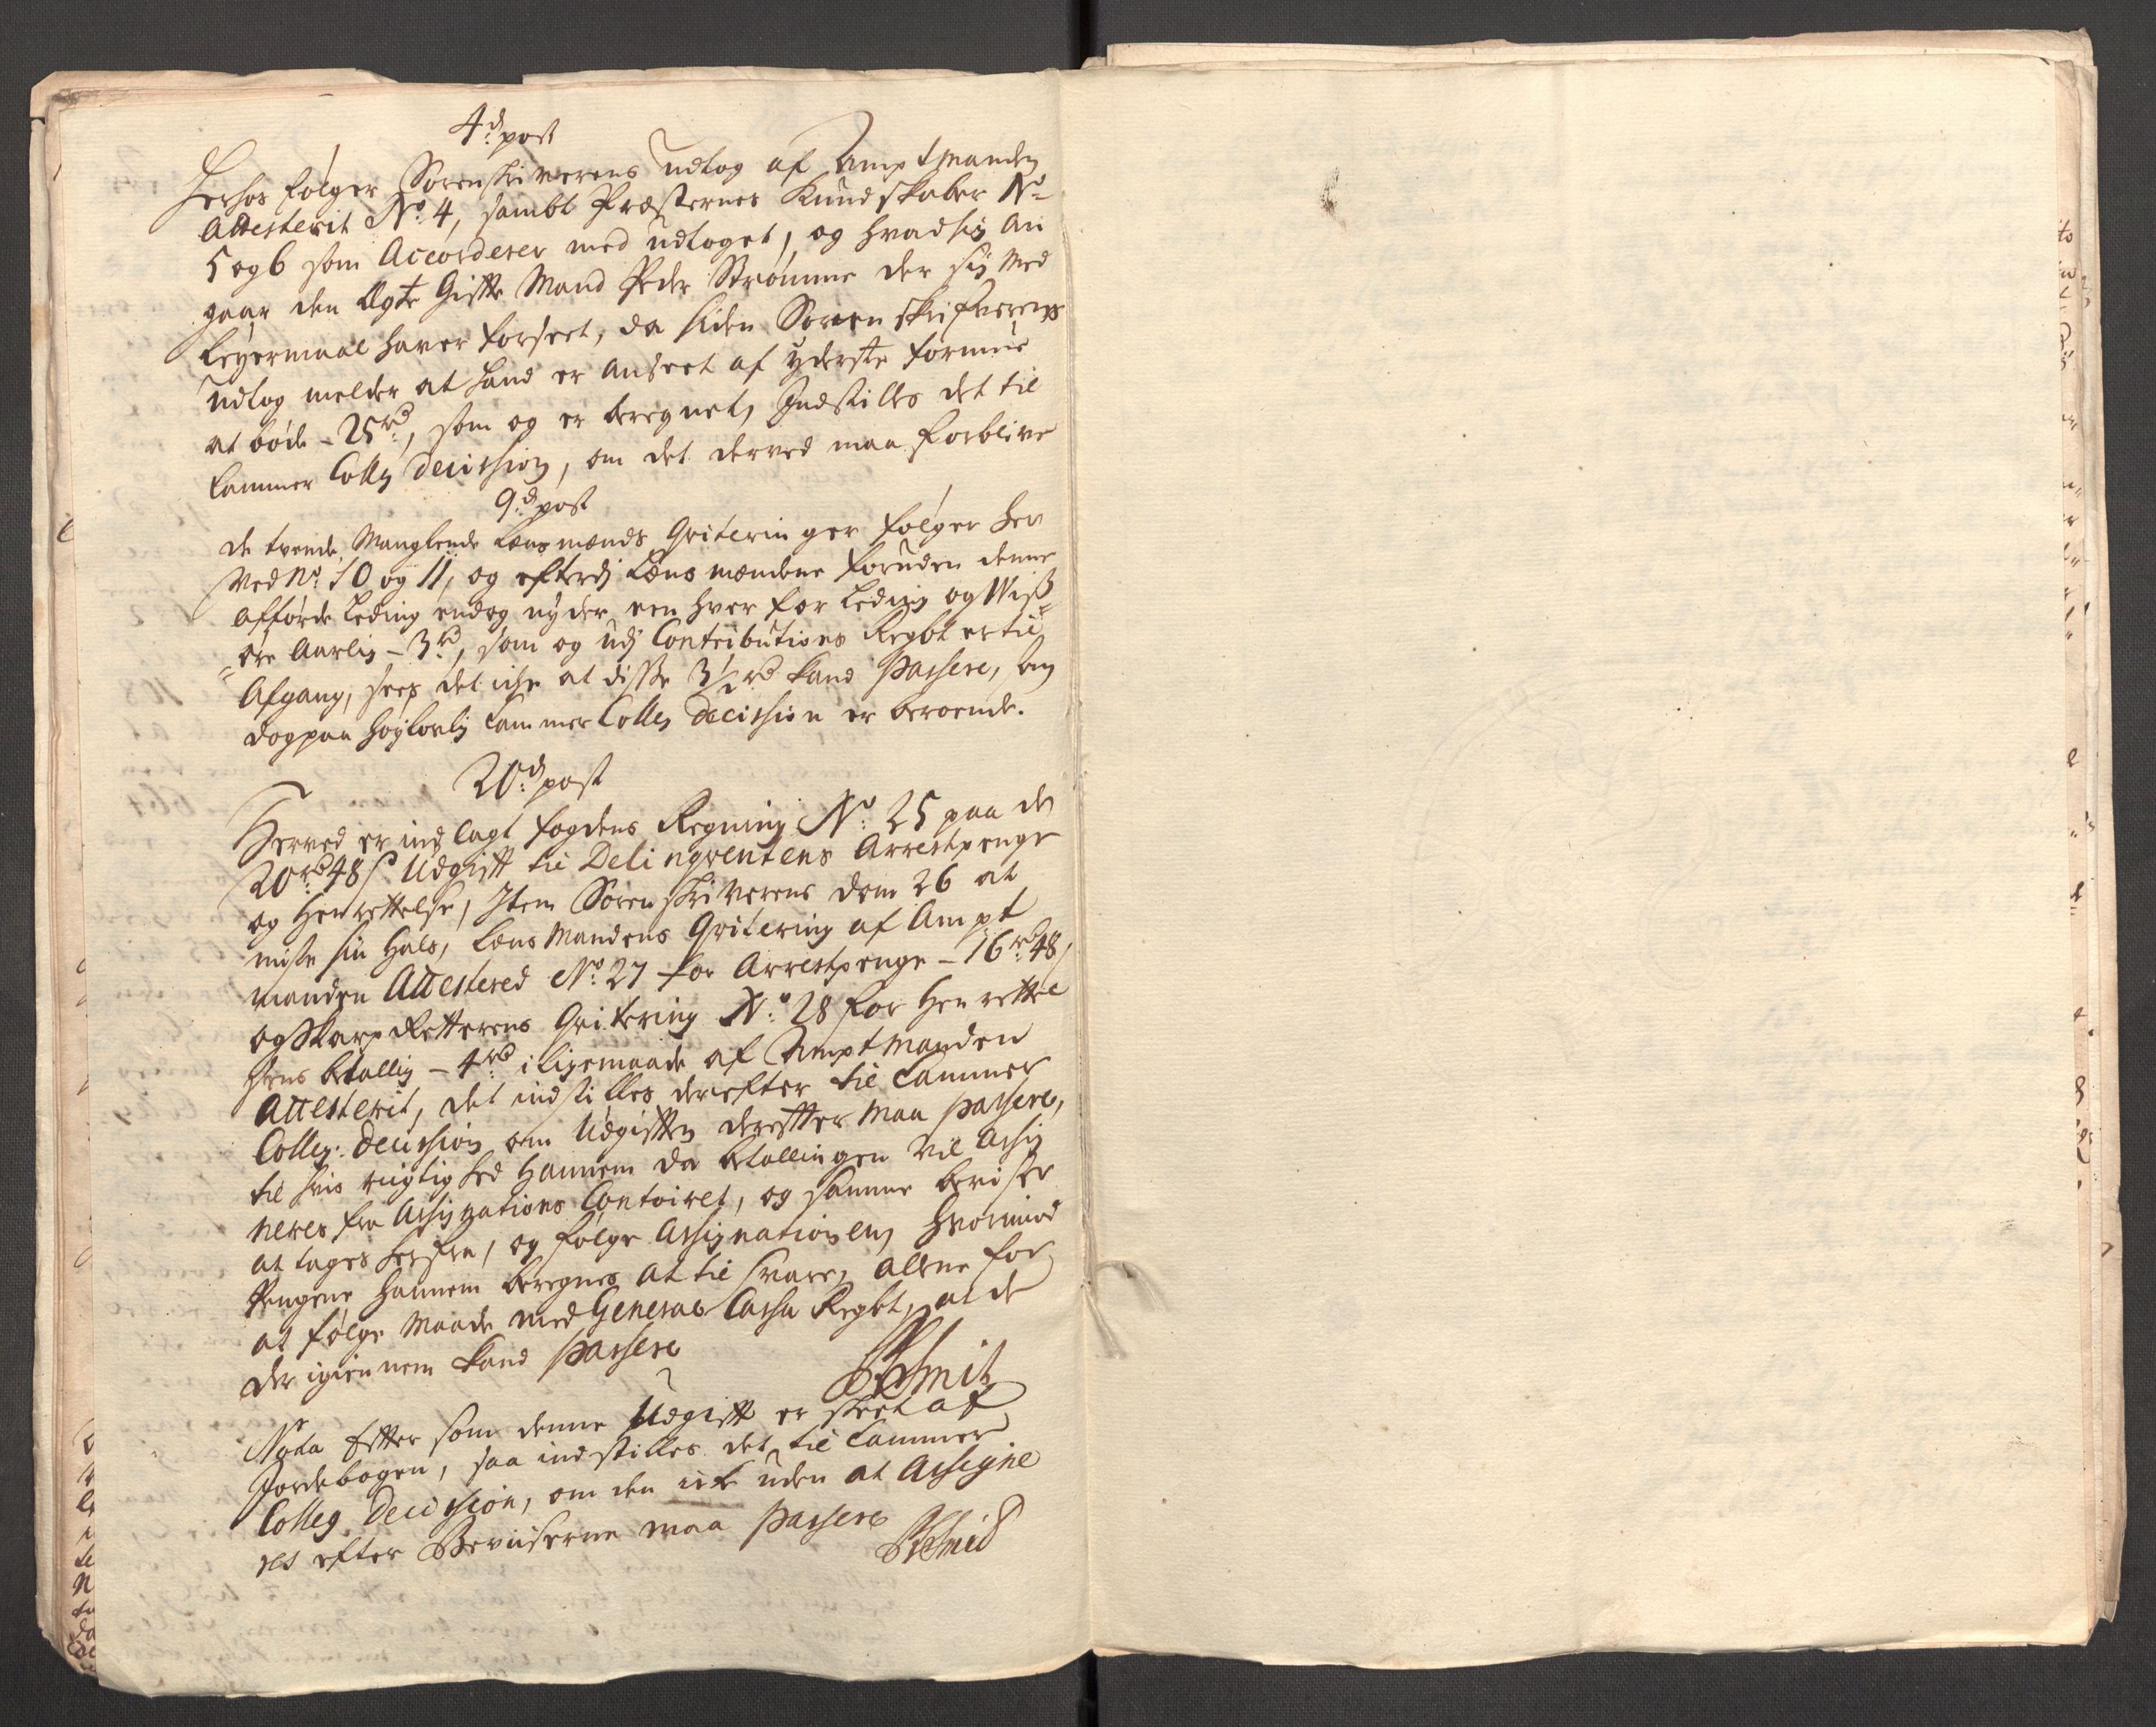 4d: post
Herhos følger Sorenskriverens Udtog af Amptmanden
Attesterit No: 4, sambt Præsternes Kundskaber No
5 og 6 som Accorderer med udtoget, og hvad sig an
gaar den Egte Gifte Mand Peder Strømme der sig med
Leyermaal haver forseet, da siden Sorenskrifverens
Udtog melder at hand er anseet af yderste formue
at bøde - 25rd:, som og er beregnet, Indstilles det til
Cammer Colleg Decission, om det derved maa forblive
9d: post
de tvende Manglende Lensmænds Qviteringer følger her
Ved No: 10 og 11, og efterdj Lensmændene foruden denne
afførde Leding endog nyder een hver for Leding og Wiss
øre Aarlig - 3rd, som og udj Contributions Regbt er til
Afgang, sees det iche at disse 3½rd kand Passere, Om
dog paa høylovlig Cammer Colleg Decission er beroende.
20d: post
Herved er indlagt fogdens Regning No: 25 paa de
20rd 48s Udgift til Delinqventens Arrestpenge
og Henrettelse, Item Sorenskriverens dom 26 at
miste sin Hals, Lensmandens Qvitering af Ampt
manden Attestered No: 27 for Arrestpenge - 16rd: 48s
og Skarp Retterens Qvitering No: 28 for Henrettel
sens betalling - 4rd: i ligemaade af Amptmanden
Attesterit, det indstilles derefter til Cammer
Colleg: Decission om Udgiften derefter maa passere,
til hvis rigtighed hannem da betallingen vil Assig
neres fra Assignations Contoiret, og samme beviser
at tages herfra, og følge Assignationen, hvorimod
Pengene hannem beregnes at til svare, allene for
at følge Maade med General Cassa Regbt, at de
der igiennem kand passere
Schmit
Nota Efter som denne Udgift er skeet af
Jordebogen, saa indstilles det til Cammer
Colleg Decission, om den iche uden at Assigne
res efter Beviiserne maa passere
Schmid